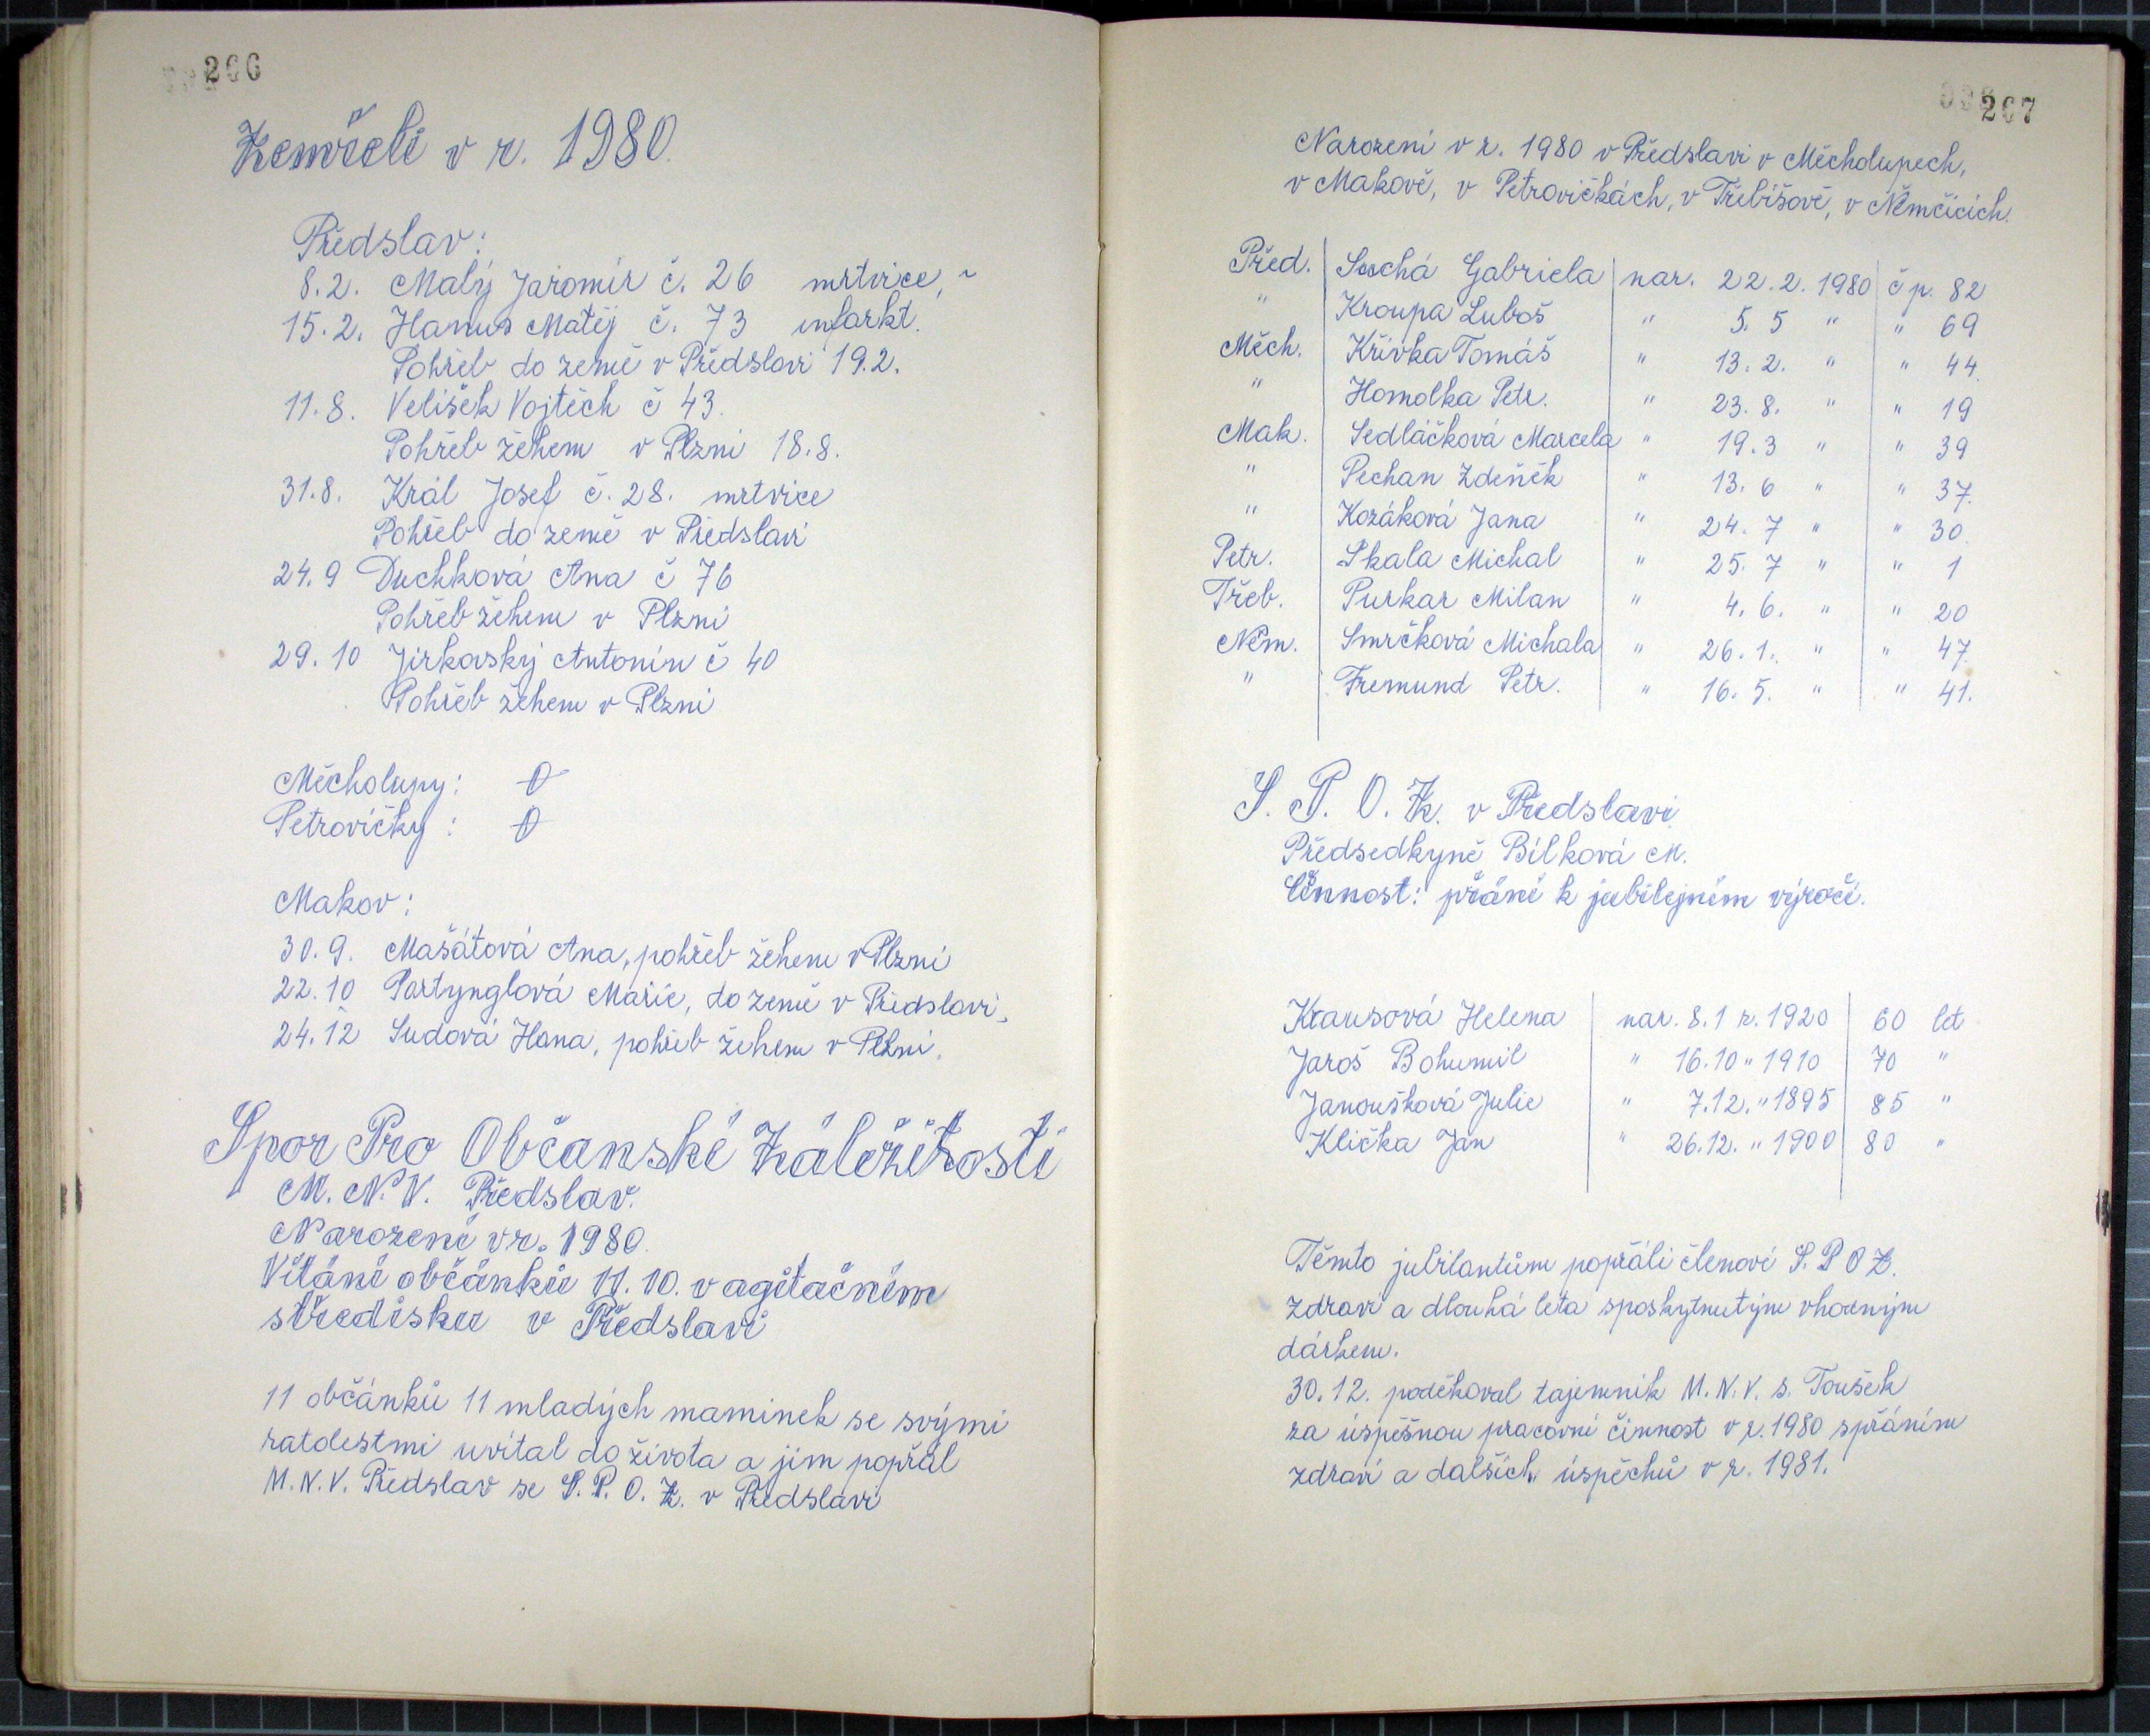 266
Zemřeli v r. 1980.
Předslav:
8.2. Malý Jaromír č. 26 mrtvice,
15.2. Hanus Matěj č. 73 infarkt.
Pohřeb do země v Předslavi 19.2.
11.8. Velíšek Vojtěch č 43.
Pohřeb žehem v Plzni 18.8.
31.8. Král Josef č. 28. mrtvice
Pohřeb do země v Předslavi
24.9 Duchková Ana č 76
Pohřeb žehem v Plzni
29.10 Jirkovský Antonín č 40
Pohřeb žehem v Plzni
Měcholupy: 0
Petrovičky: 0
Makov:
30.9. Mašátová Ana, pohřeb žehem v Plzni
22.10 Partynglová Marie, do země v Předslavi,
24.12 Sudová Hana, pohřeb žehem v Plzni.
Spor Pro Občanské Záležitosti
M. N. V. Předslav.
Narození v r. 1980.
Vítání občánků 11.10. v agitačním
středisku v Předslavi
11 občánků 11 mladých maminek se svými
ratolestmi uvítal do života a jim popřál
M. N. V. Předslav se S. P. O. Z. v Předslavi
267
Narození v r. 1980 v Předslavi v Měcholupech,
v Makově, v Petrovičkách, v Třebíšově, v Němčicích.
Před. Suchá Gabriela nar. 22.2. 1980 č p. 82
" Kroupa Luboš " 5. 5 " " 69
Měch. Křivka Tomáš " 13. 2. " " 44.
" Homolka Petr. " 23. 8. " " 19
Mak. Sedláčková Marcela " 19. 3 " " 39
" Pechan Zdeněk " 13. 6 " " 37.
" Kozáková Jana " 24. 7 " " 30.
Petr. Skala Michal " 25. 7 " " 1
Třeb. Purkar Milan " 4. 6. " " 20
Něm. Smrčková Michala " 26. 1. " " 47.
" Fremund Petr. " 16. 5. " " 41.
S. P. O. Z. v Předslavi
Předsedkyně Bílková M.
Činnost: přání k jubilejním výročí.
Krausová Helena nar. 8.1 r. 1920 60 let
Jaroš Bohumil " 16.10 " 1910 70 "
Janoušková Julie " 7.12. " 1895 85 "
Klička Jan " 26.12. " 1900 80 "
Těmto jubilantům popřáli členové S. P O Z.
zdraví a dlouhá léta sposkytnutým vhodným
dárkem.
30.12. poděkoval tajemník M. N. V. s. Toušek
za úspěšnou pracovní činnost v r. 1980 spřáním
zdraví a dalších úspěchů v r. 1981.